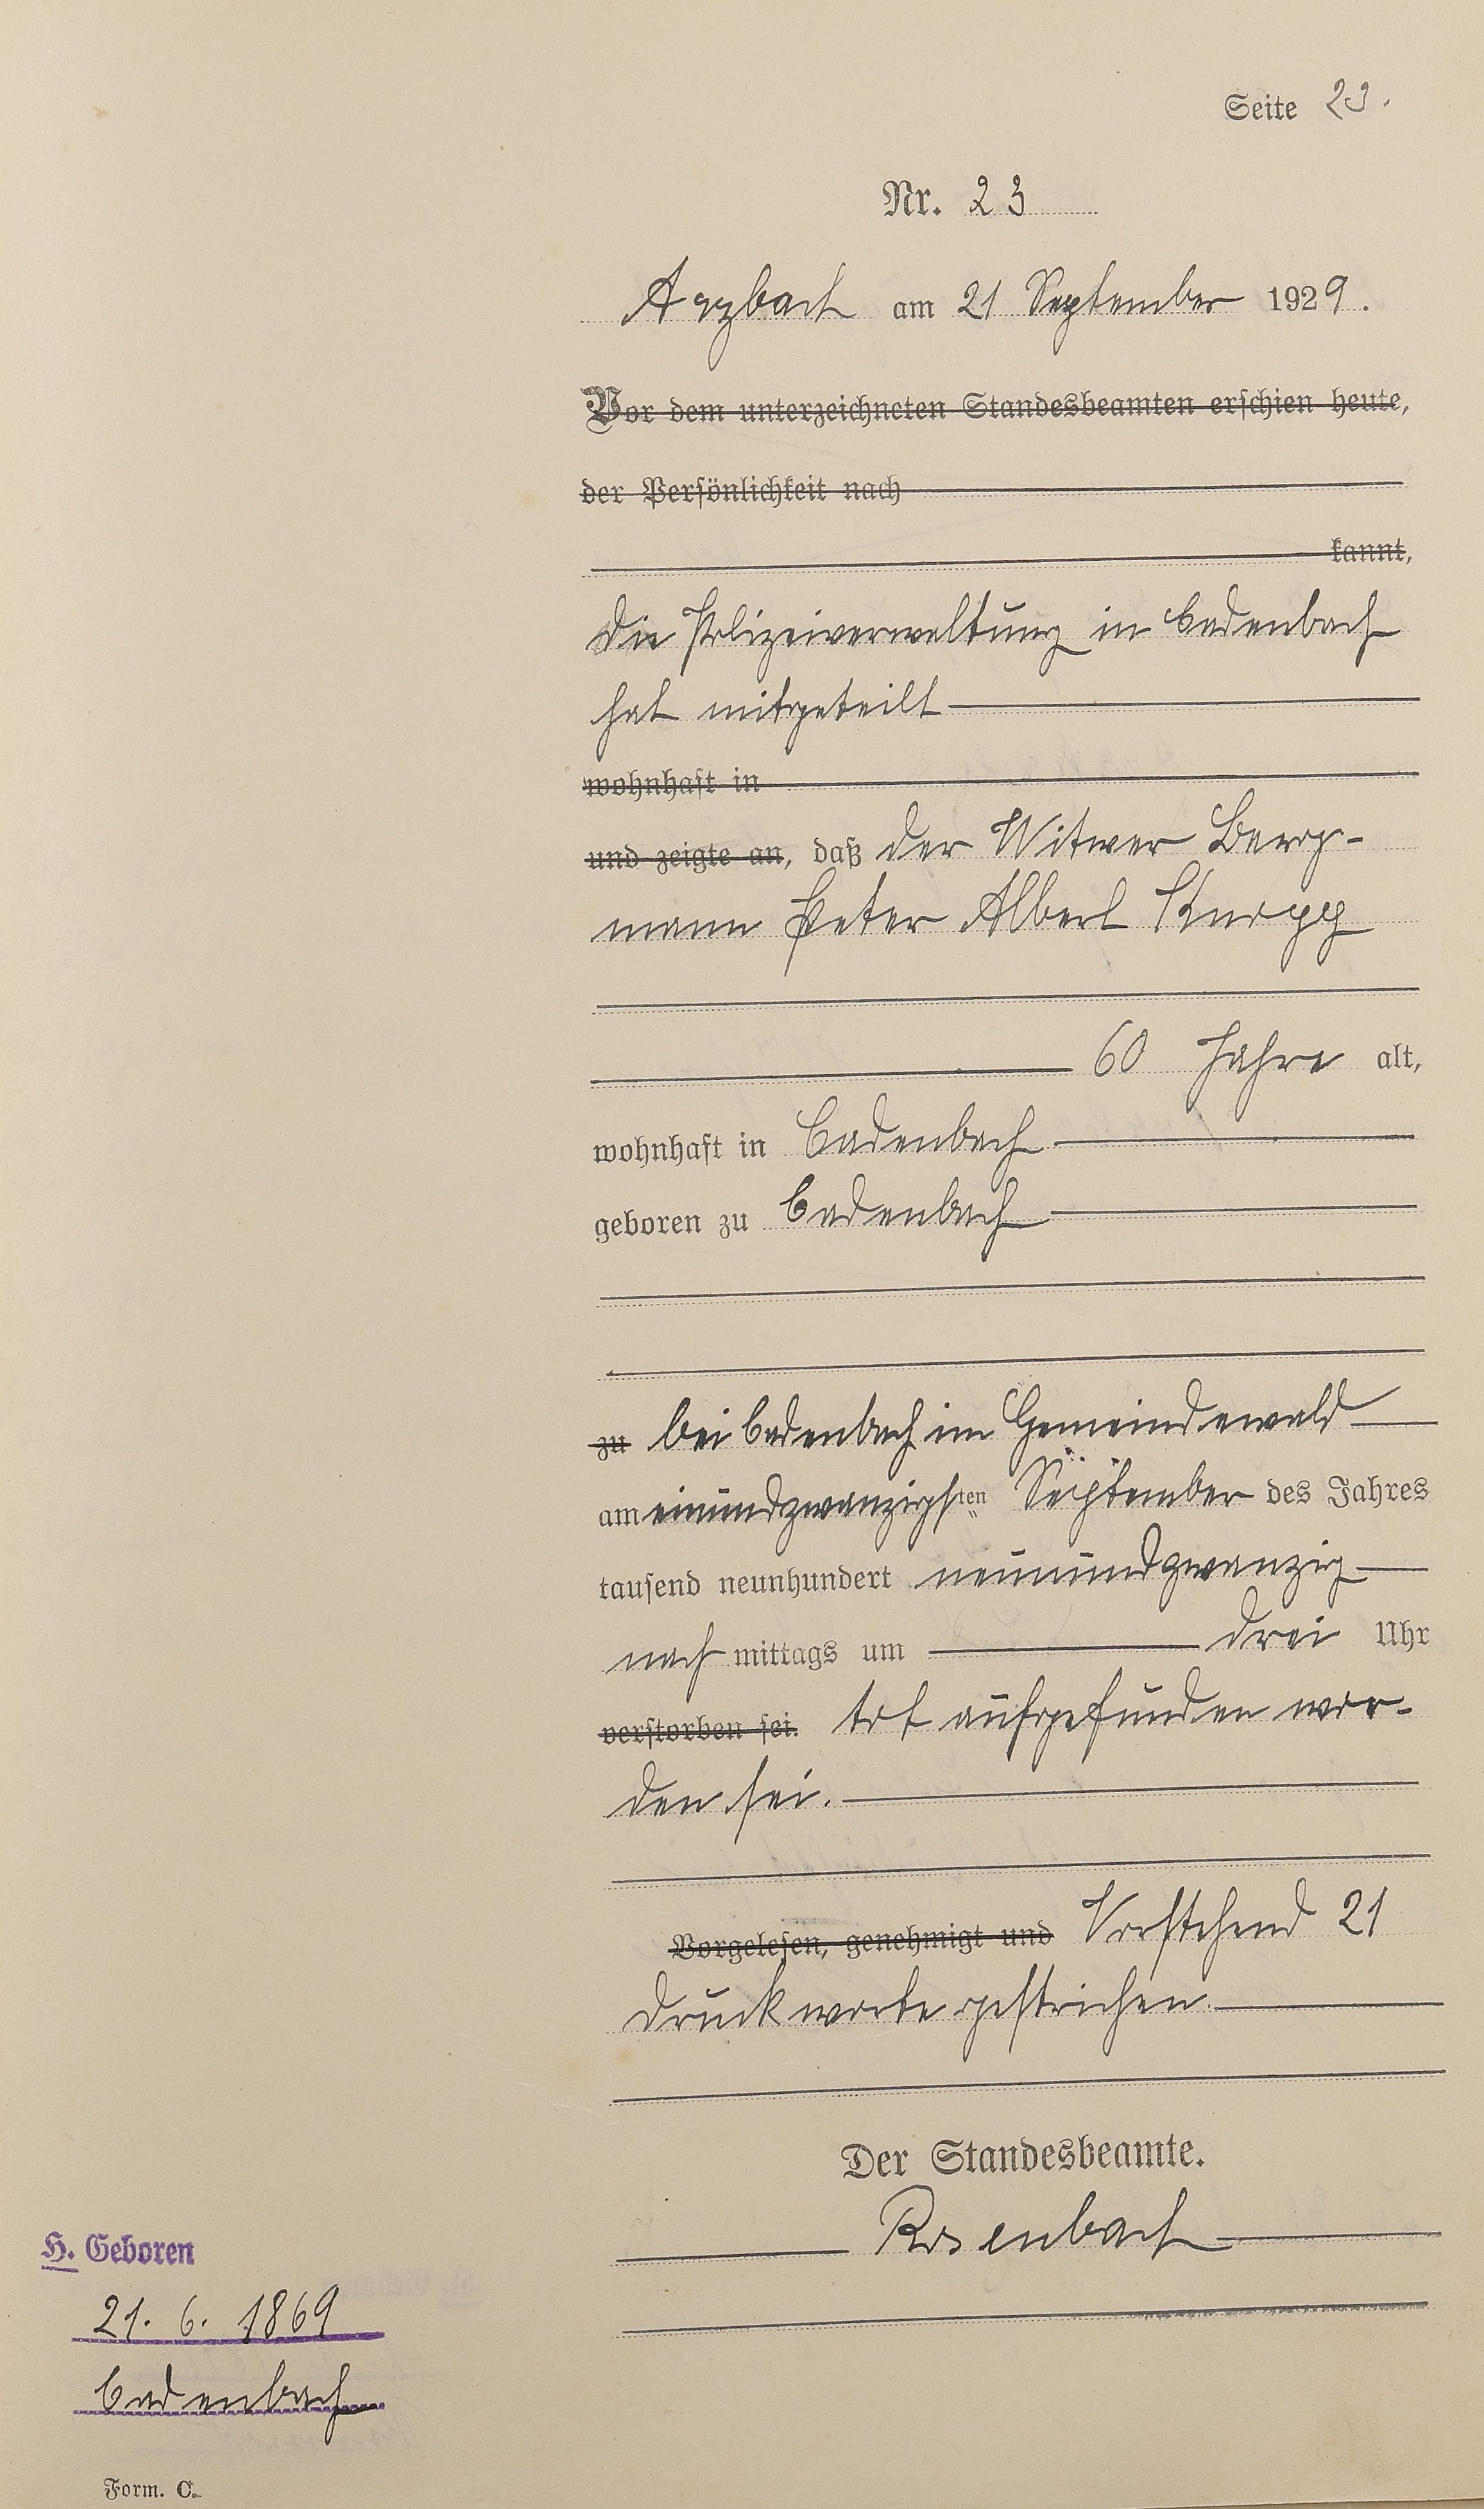 Seite 23.
Nr. 23
Arzbach am 21 September 1929.
Vor dem unterzeichneten Standesbeamten erschien heute,
der Persönlichkeit nach
kannt,
die Polizeiverwaltung in Cadenbach
hat mitgeteilt
wohnhaft in
und zeigte an, daß der Witwer Berg-
mann Peter Albert Knopp
60 Jahre alt,
wohnhaft in Cadenbach
geboren zu Cadenbach
zu bei Cadenbach im Gemeindewald
am einundzwanzigsten September des Jahres
tausend neunhundert neunundzwanzig
nach mittags um drei Uhr
verstorben sei. tot aufgefunden wor-
den sei.
Vorgelesen, genehmigt und Vorstehend 21
Druckworte gestrichen.
Der Standesbeamte.
Rosenbach
H. Geboren
21. 6. 1869
Cadenbach
Form. C.